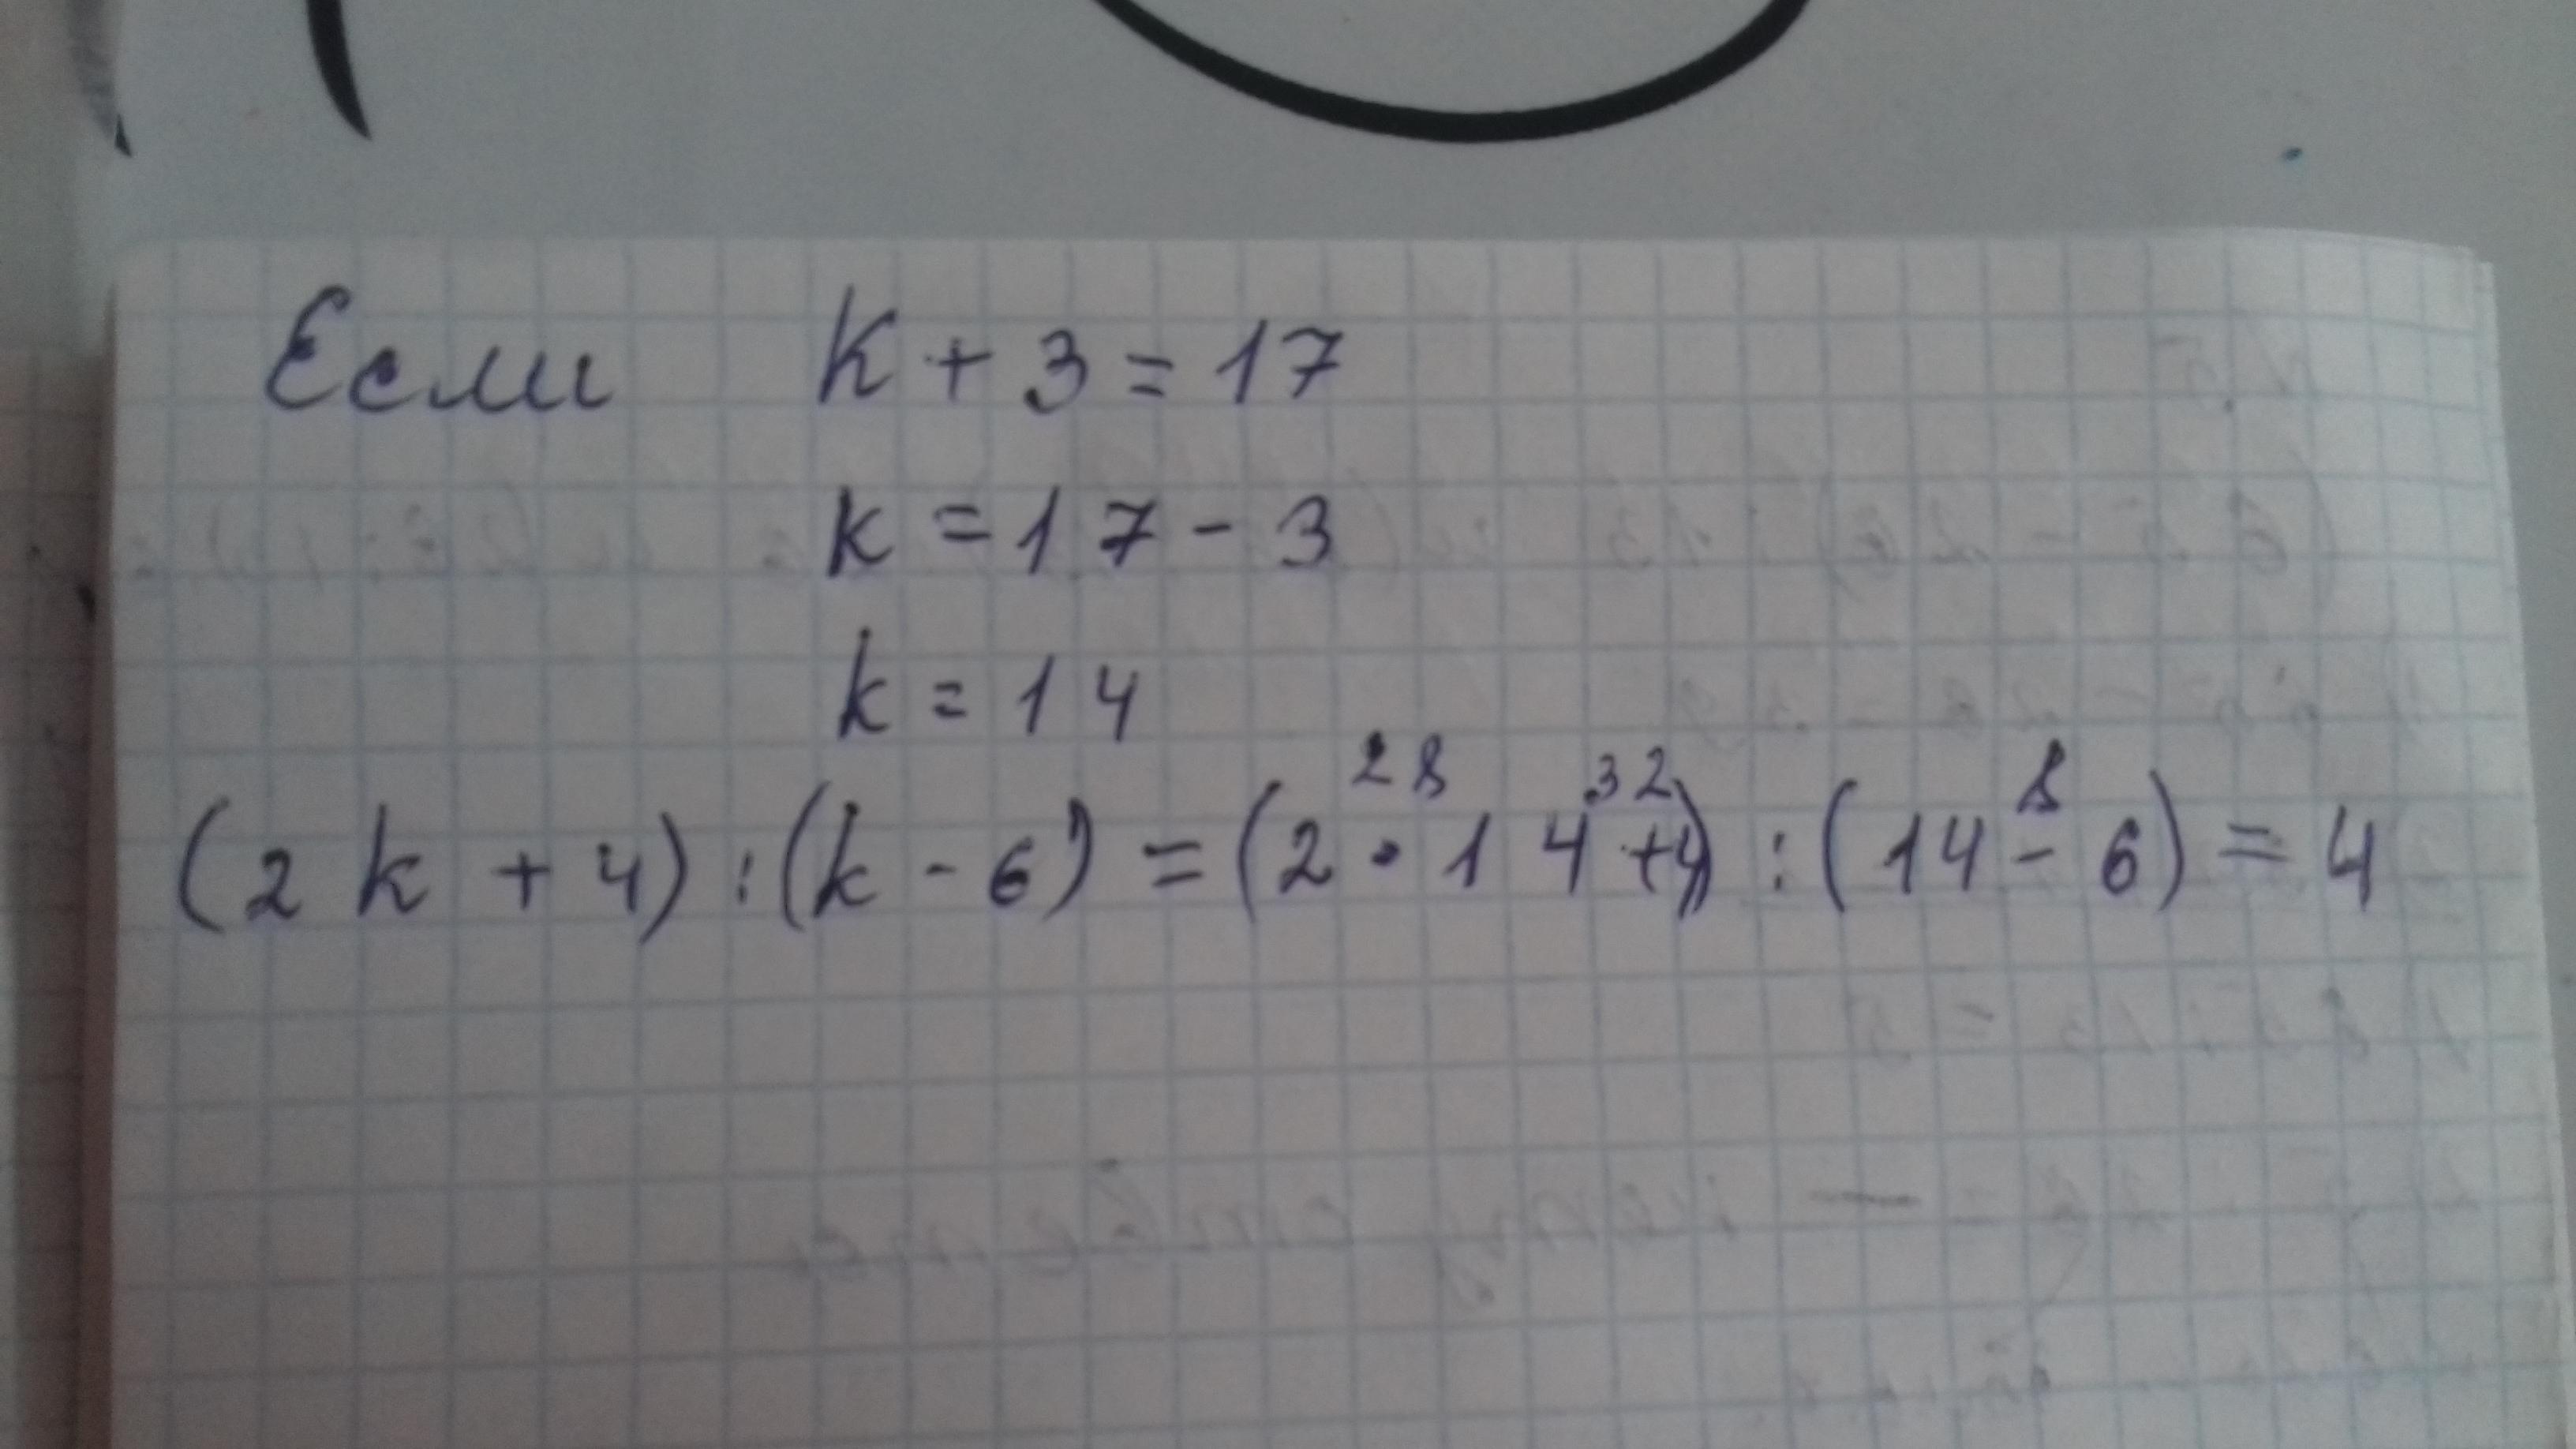 Если K + 3 = 17
k = 17 - 3
k = 14
28 32 8
(2k + 4) : (k - 6) = (2 • 14 + 4) : (14 - 6) = 4